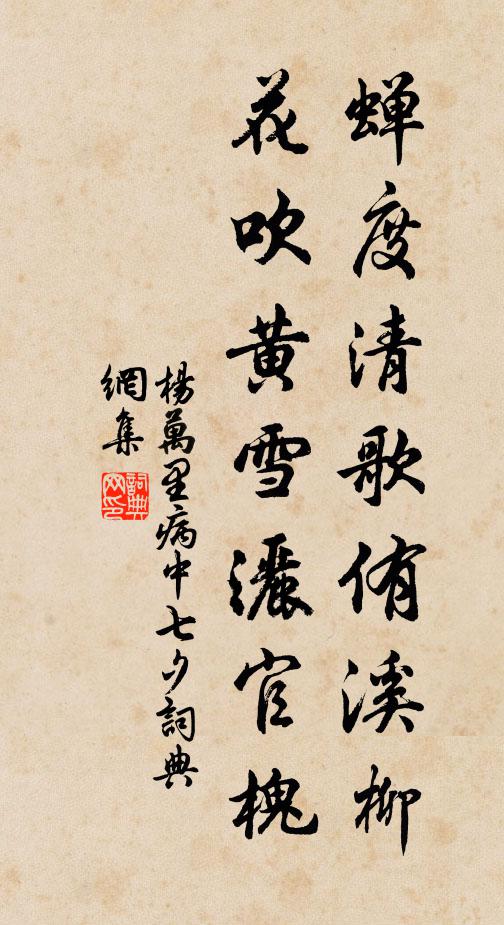 蝉度清歌侑溪柳
花吹黄雪灑官槐
楊萬里病中七夕詞典
網集
詞典
网印